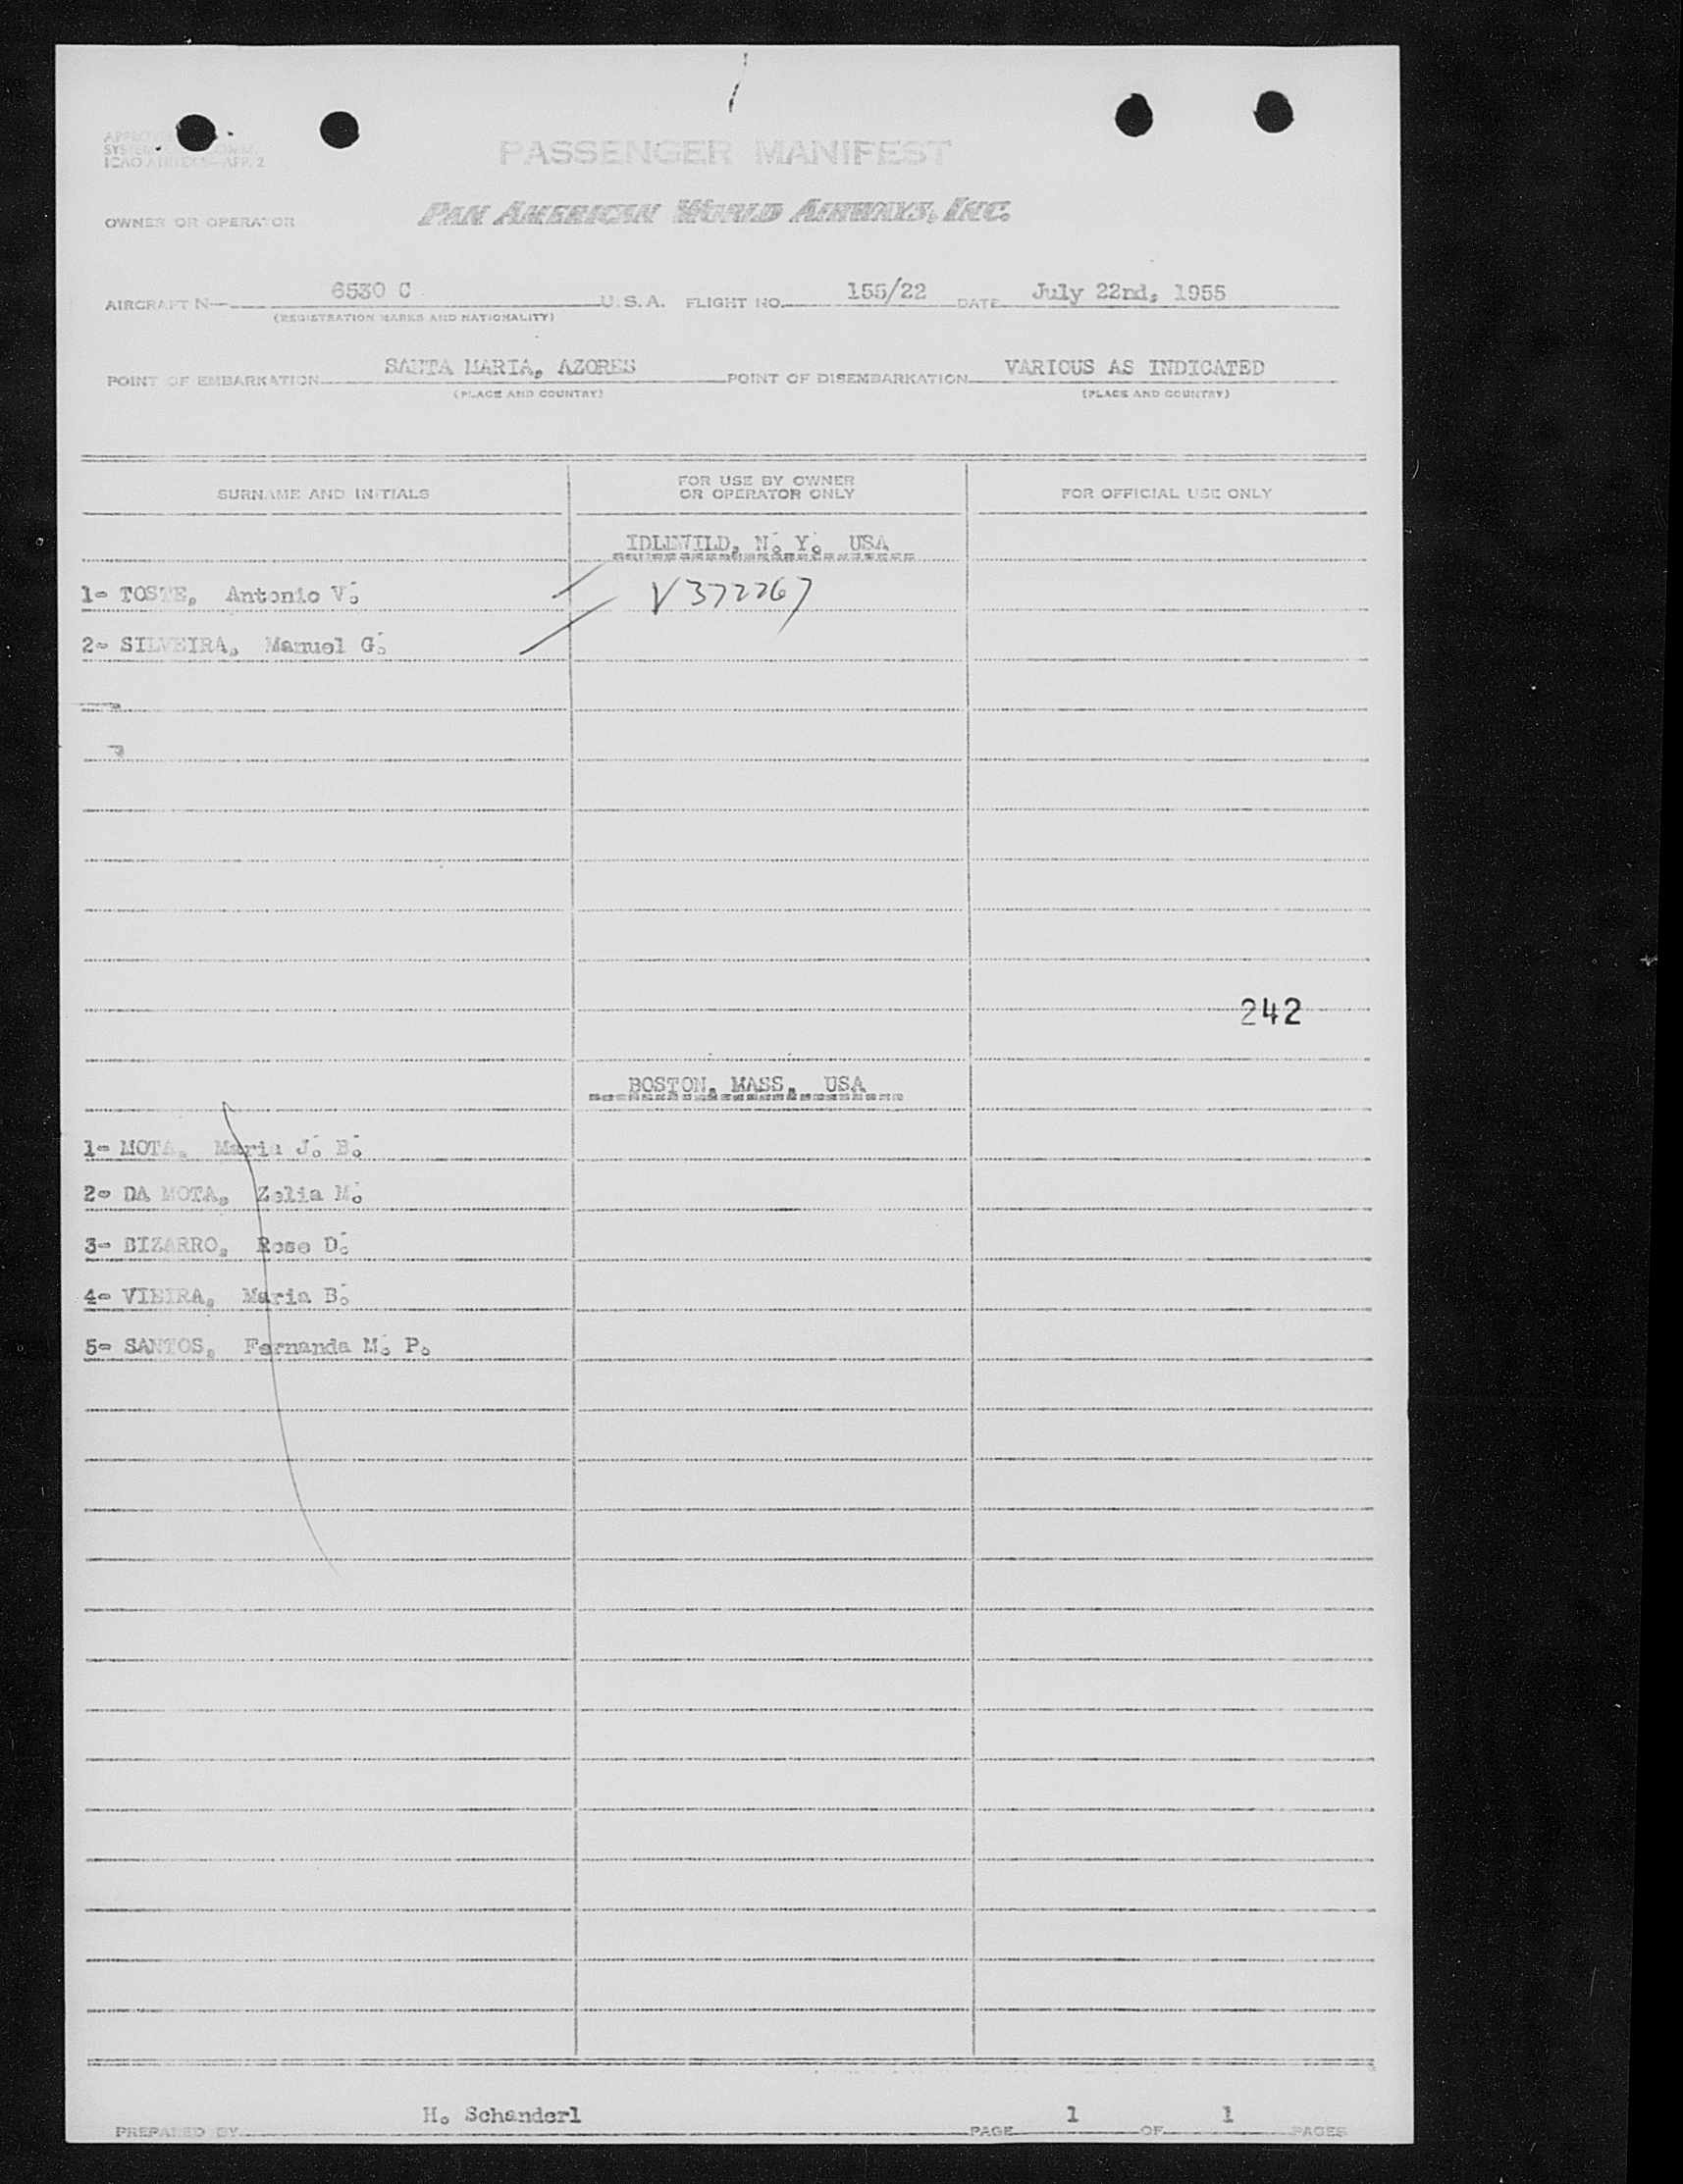 PASSENGER MANIFEST
OWNER OR OPERATOR PAN AMERICAN WORLD AIRWAYS, INC.
AIRCRAFT N 6530 C U.S.A. FLIGHT NO. 155/22 DATE July 22nd, 1955
(REGISTRATION MARKS AND NATIONALITY)
POINT OF EMBARKATION SANTA MARIA, AZORES POINT OF DISEMBARKATION VARIOUS AS INDICATED
(PLACE AND COUNTRY) (PLACE AND COUNTRY)
SURNAME AND INITIALS FOR USE BY OWNER OR OPERATOR ONLY FOR OFFICIAL USE ONLY
IDLEWILD, N. Y. USA
1- TOSTE, Antonio V. V372267
2- SILVEIRA, Manuel G.
242
BOSTON, MASS. USA
1- MOTA, Maria J. B.
2- DA MOTA, Zelia M.
3- BIZARRO, Rose D.
4- VIEIRA, Maria B.
5- SANTOS, Fernanda M. P.
PREPARED BY H. Schanderl PAGE 1 OF 1 PAGES